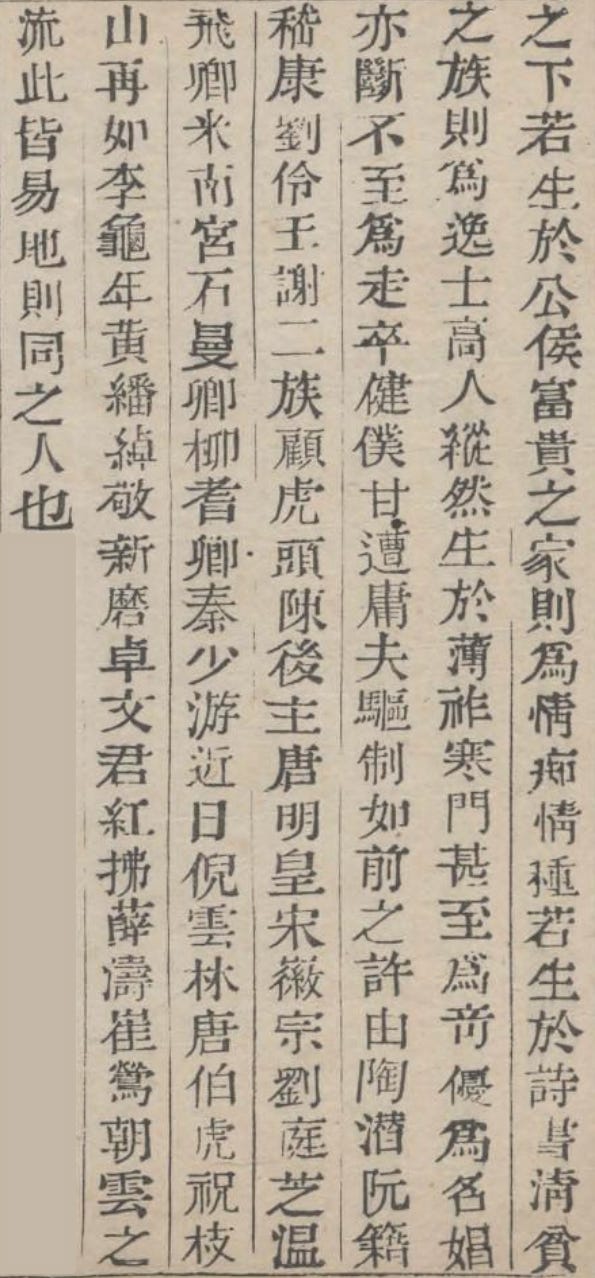 之下若生於公侯富貴之家則爲情痴情種若生於詩書淸貧
之族則爲逸士高人縱然生於薄祚寒門甚至爲竒優爲名娼
亦斷不至爲走卒健僕甘遭庸夫驅制如前之許由陶潛阮籍
嵇康劉伶王謝二族顧虎頭陳後主唐明皇宋徽宗劉庭芝溫
飛卿米南宮石曼卿柳耆卿秦少游近日倪雲林唐伯虎祝枝
山再如李龜年黃繙綽敬新磨卓文君紅拂薛濤崔鶯朝雲之
流此皆易地則同之人也